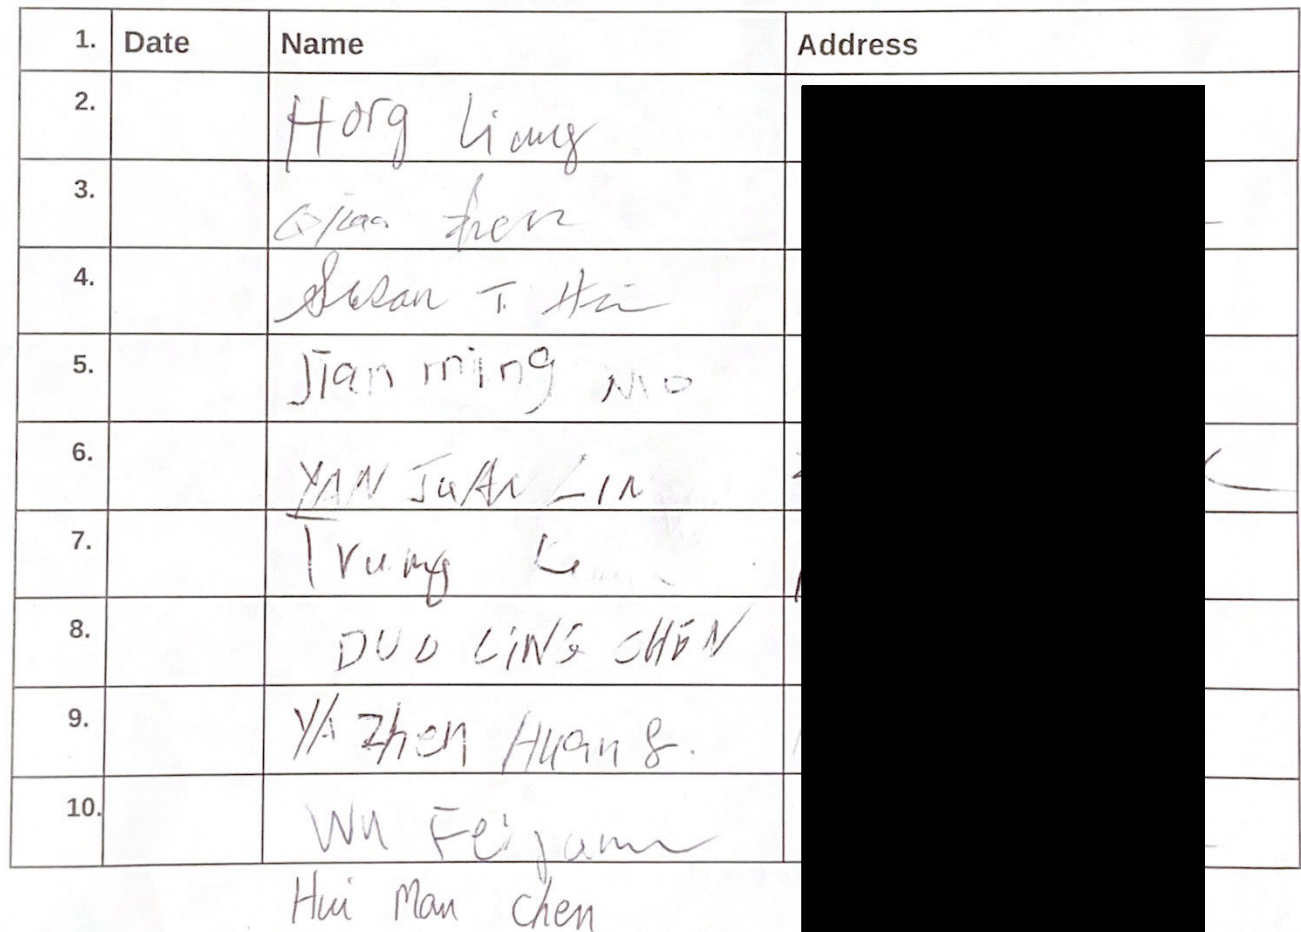 1. Date Name Address
2. Hong Liang
3. Qiao zhen
4. Susan T.
5. Jian ming Mo
6. YAN JUAN LIN
7. Trung
8. DUO LING CHEN
9. YA Zhen Huang.
10. Wu Fei
Hui Man Chen